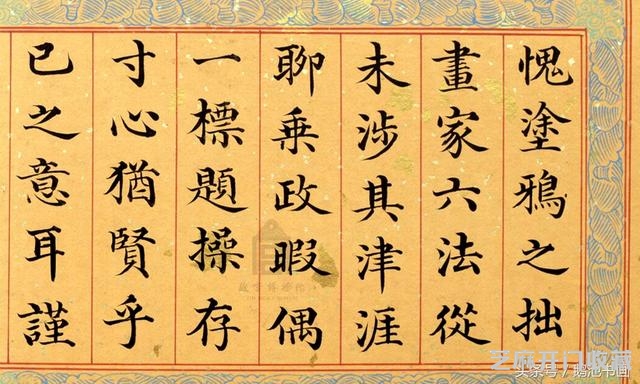 愧塗鴉之拙
畫家六法從
未涉其津涯
聊乗政暇偶
一標題操存
寸心猶賢乎
已之意耳謹
故宫博物院
芝麻开门收藏
头条号/鹅池书画